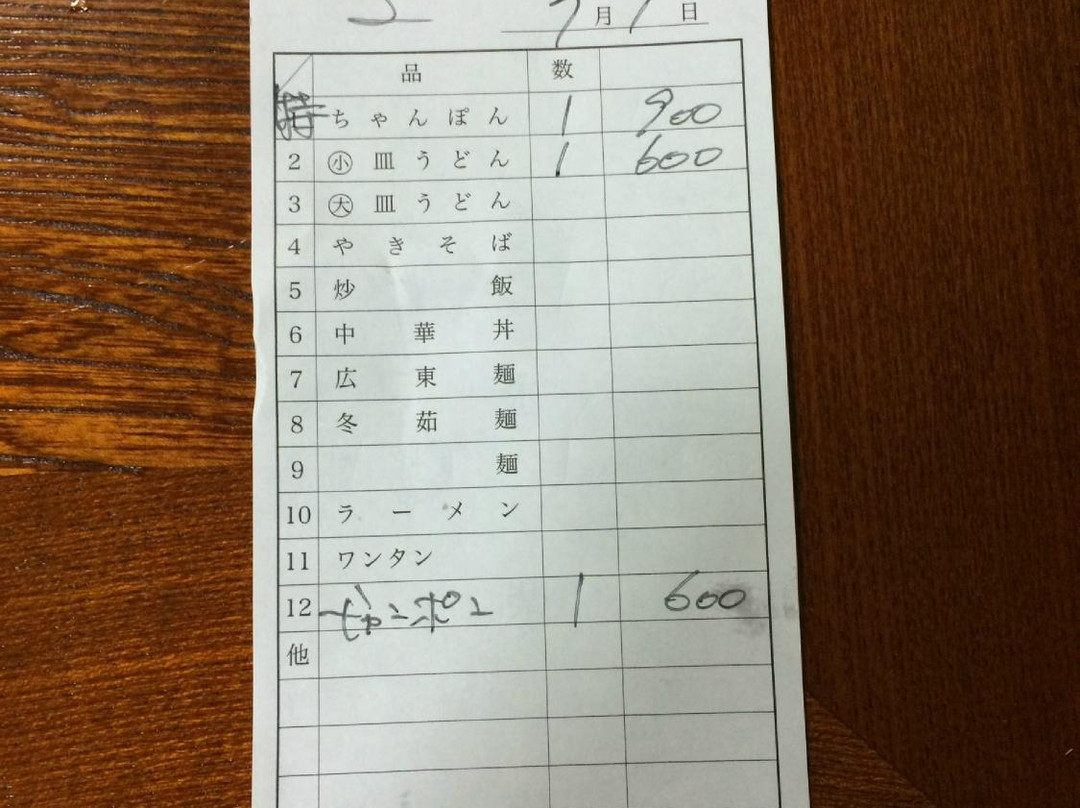 7月7日
品 数
特 ちゃんぽん 1 900
2 ㊥小 皿うどん 1 600
3 大 皿うどん
4 やきそば
5 炒飯
6 中華丼
7 広東麺
8 冬茹麺
9 麺
10 ラーメン
11 ワンタン
12 1 600
他